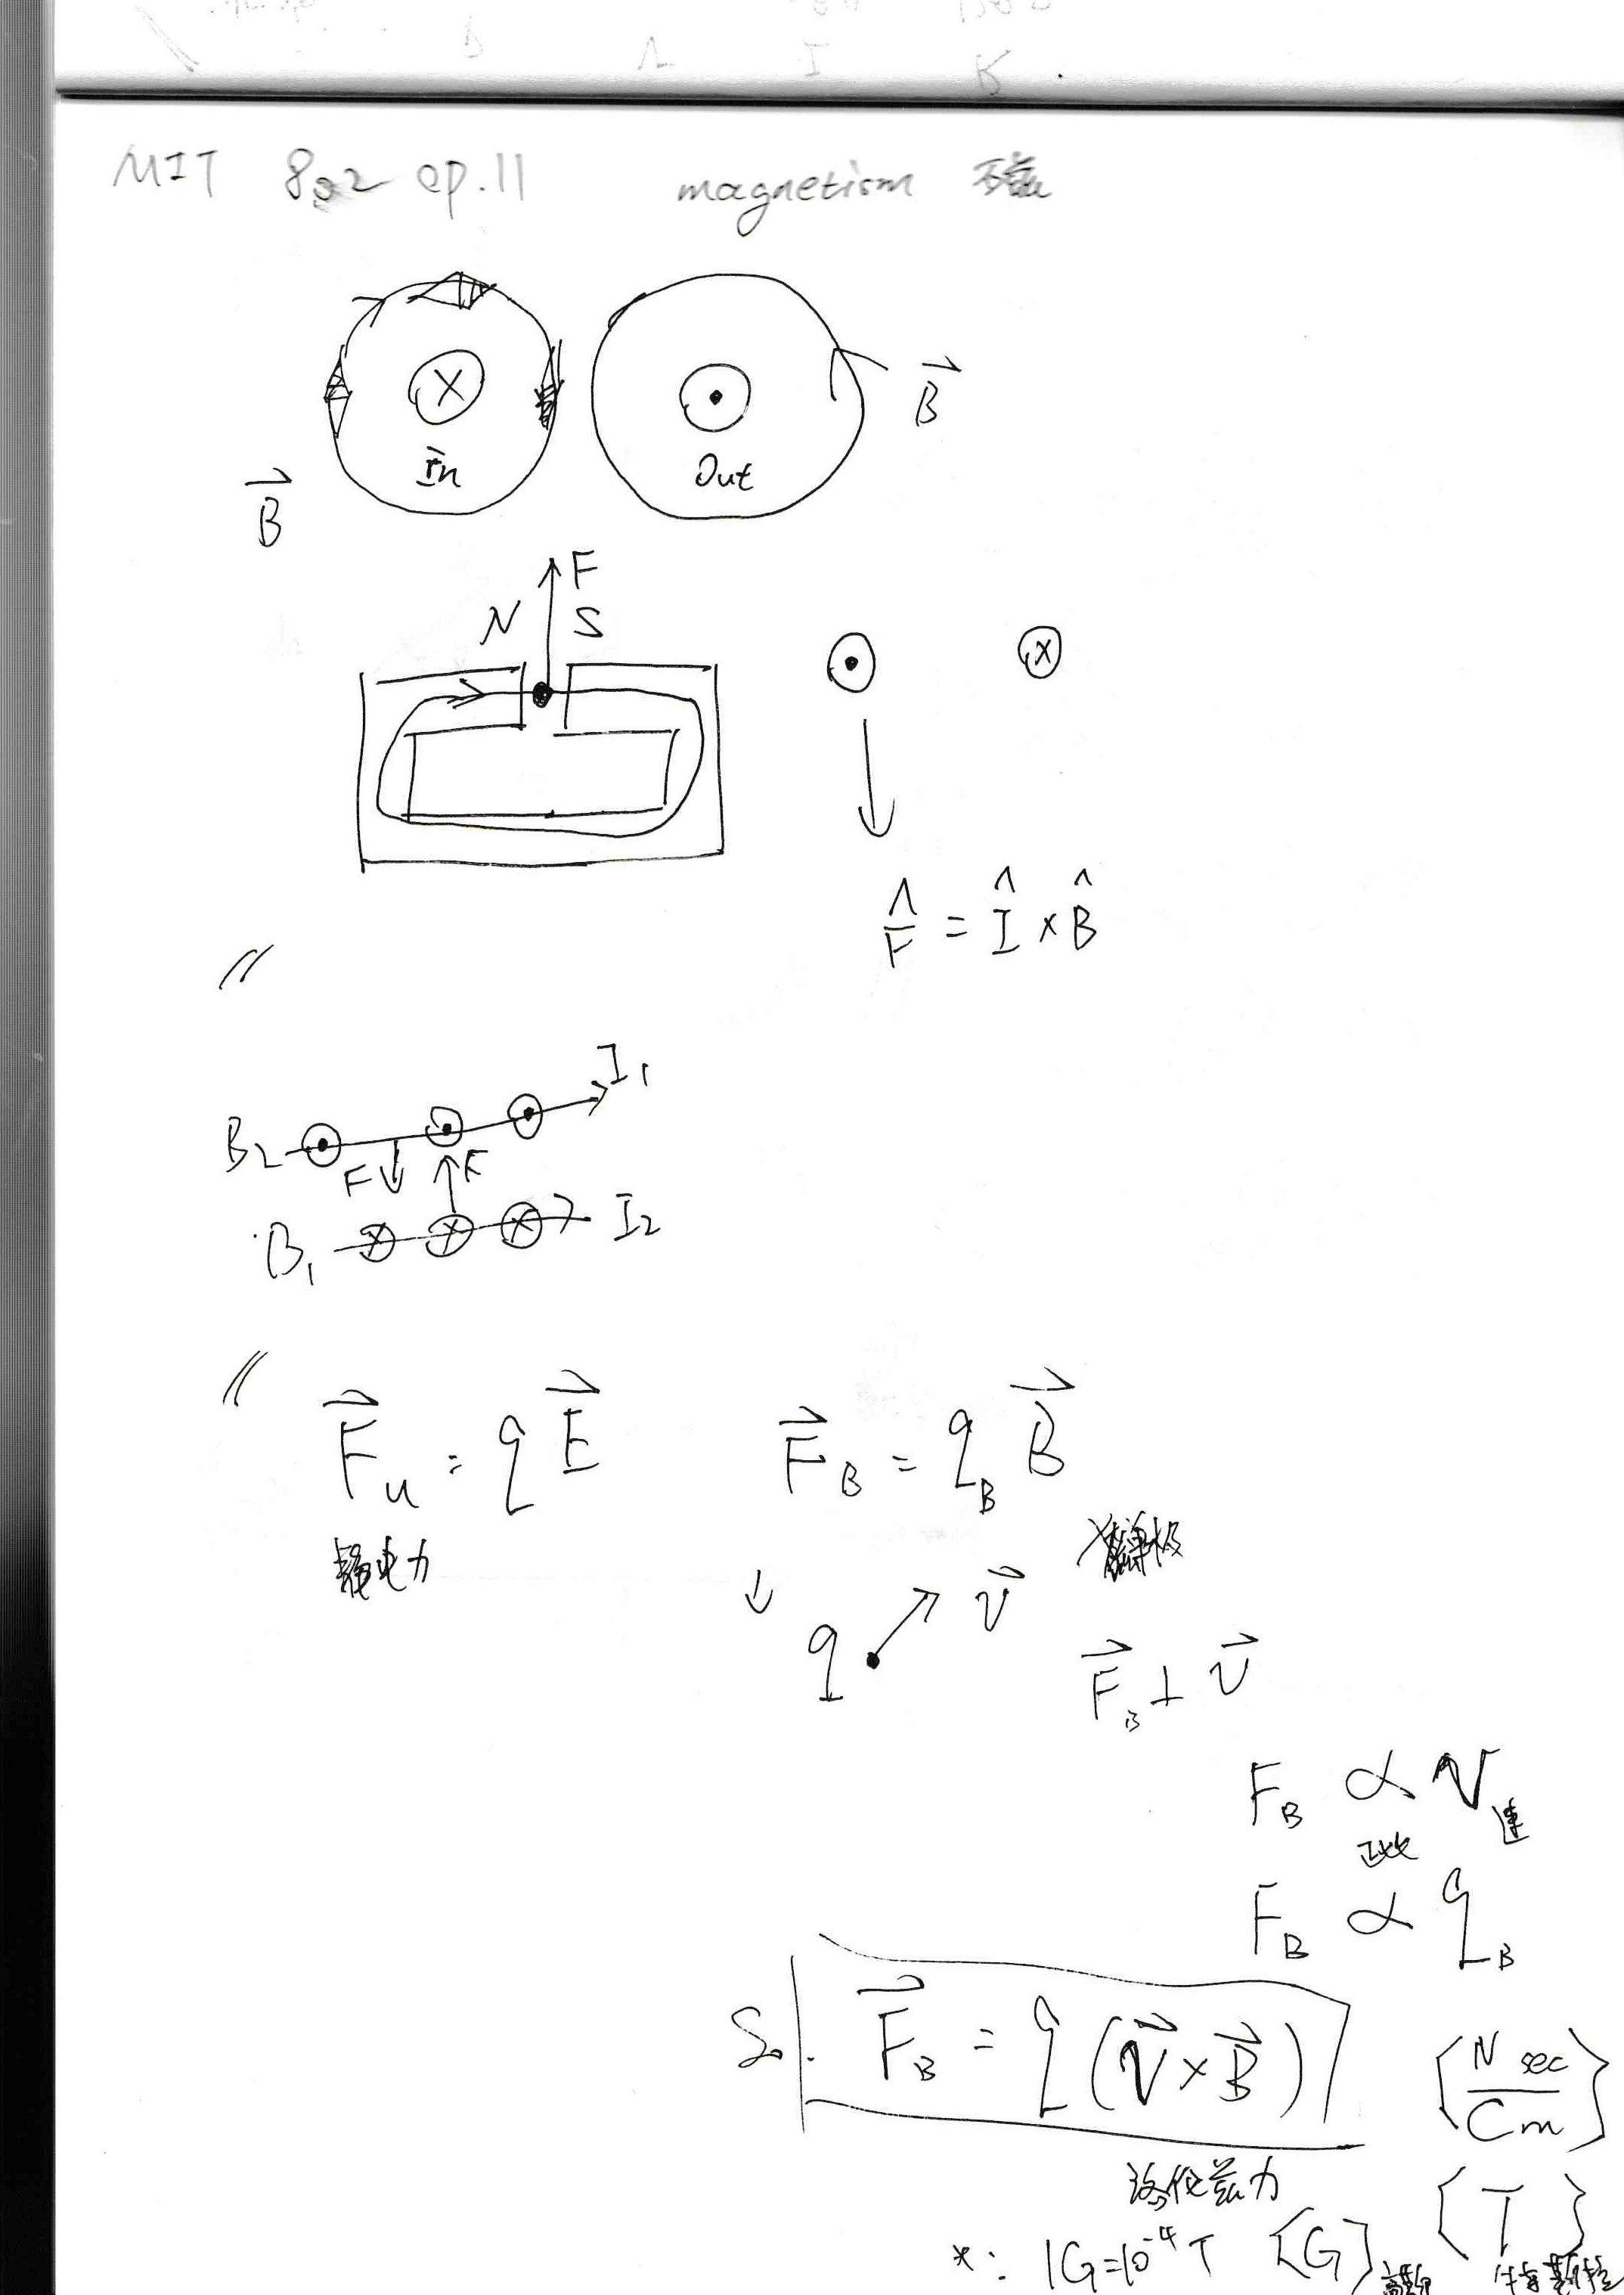 MIT 8.02 ep.11 magnetism 磁
B⃗
In
Out
B⃗
F
N S
F̂ = Î × B̂
I₁
B₂
F F
B₁ I₂
F⃗u = q E⃗
F⃗B = qB B⃗
静电力
磁单极
q v⃗
F⃗B ⊥ v⃗
FB ∝ v 速
正比
FB ∝ qB
So. F⃗B = q (v⃗ × B⃗)
{N sec / C m}
洛伦兹力
{T}
*: 1G=10⁻⁴ T [G] 高斯 特斯拉